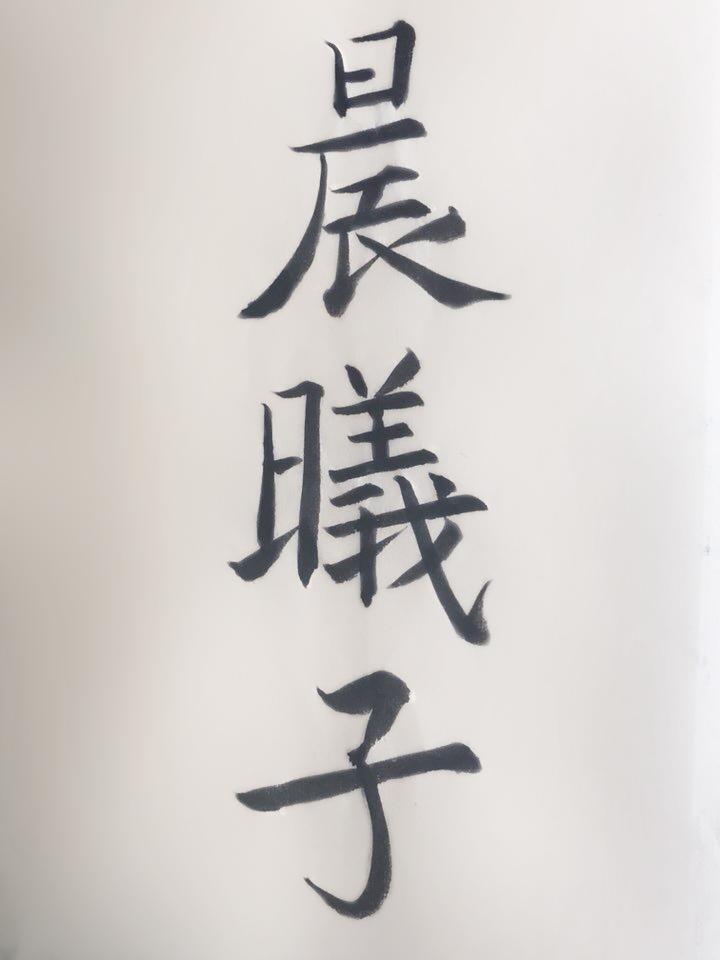 晨曦子